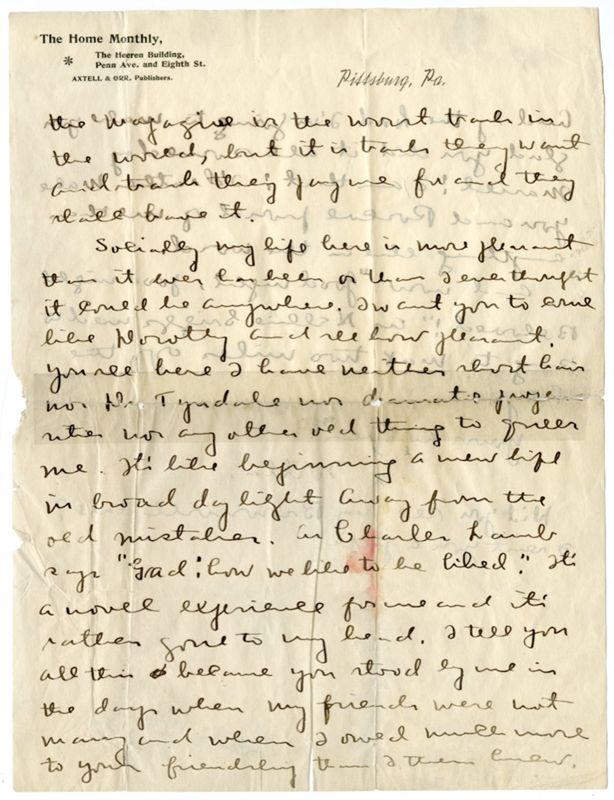 The Home Monthly,
The Heeren Building,
* Penn Ave. and Eighth St.
AXTELL & ORR, Publishers.
Pittsburg, Pa.
the magazine is the worst trash in
the world, but it is trash they want
and trash they pay me for and they
shall have it.
Socially my life here is more pleasant
than it ever has been or than I ever thought
it could be anywhere. I want you to come
like Dorothy and see how pleasant.
You see here I have neither short hair
nor Dr. Tyndale nor dramatic
nor any other old thing to queer
me. It's like beginning a new life
in broad daylight away from the
old mistakes. As Charles Lamb
says "Gad! how we like to be liked." It's
a novel experience for me and it's
rather gone to my head. I tell you
all this because you stood by me in
the days when my friends were not
many and when I owed much more
to your friendship than I then knew.